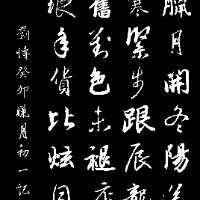 臘月開冬陽
寒緊步跟辰龍
舊色未褪
年貨比炫
劉癸卯臘月初一記